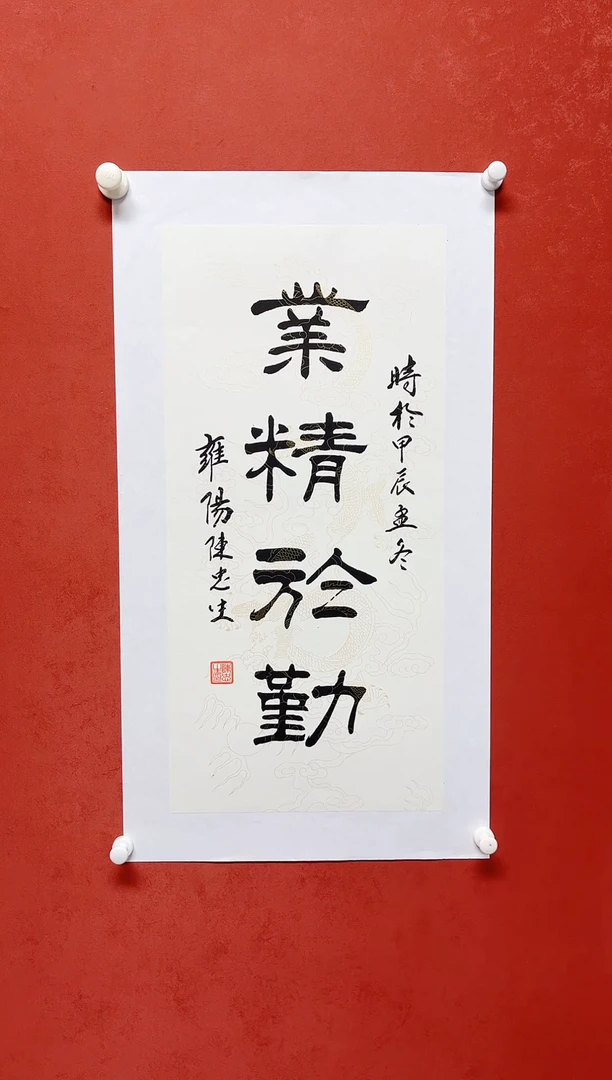 業精於勤
時於甲辰孟冬
雍陽陳忠生